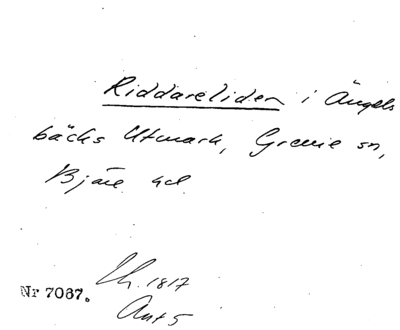 Riddareliden i Ängels
bäcks Utmark, Grevie sn,
Bjäre hd
Ch. 1817
Nr 7067.
Ant 5